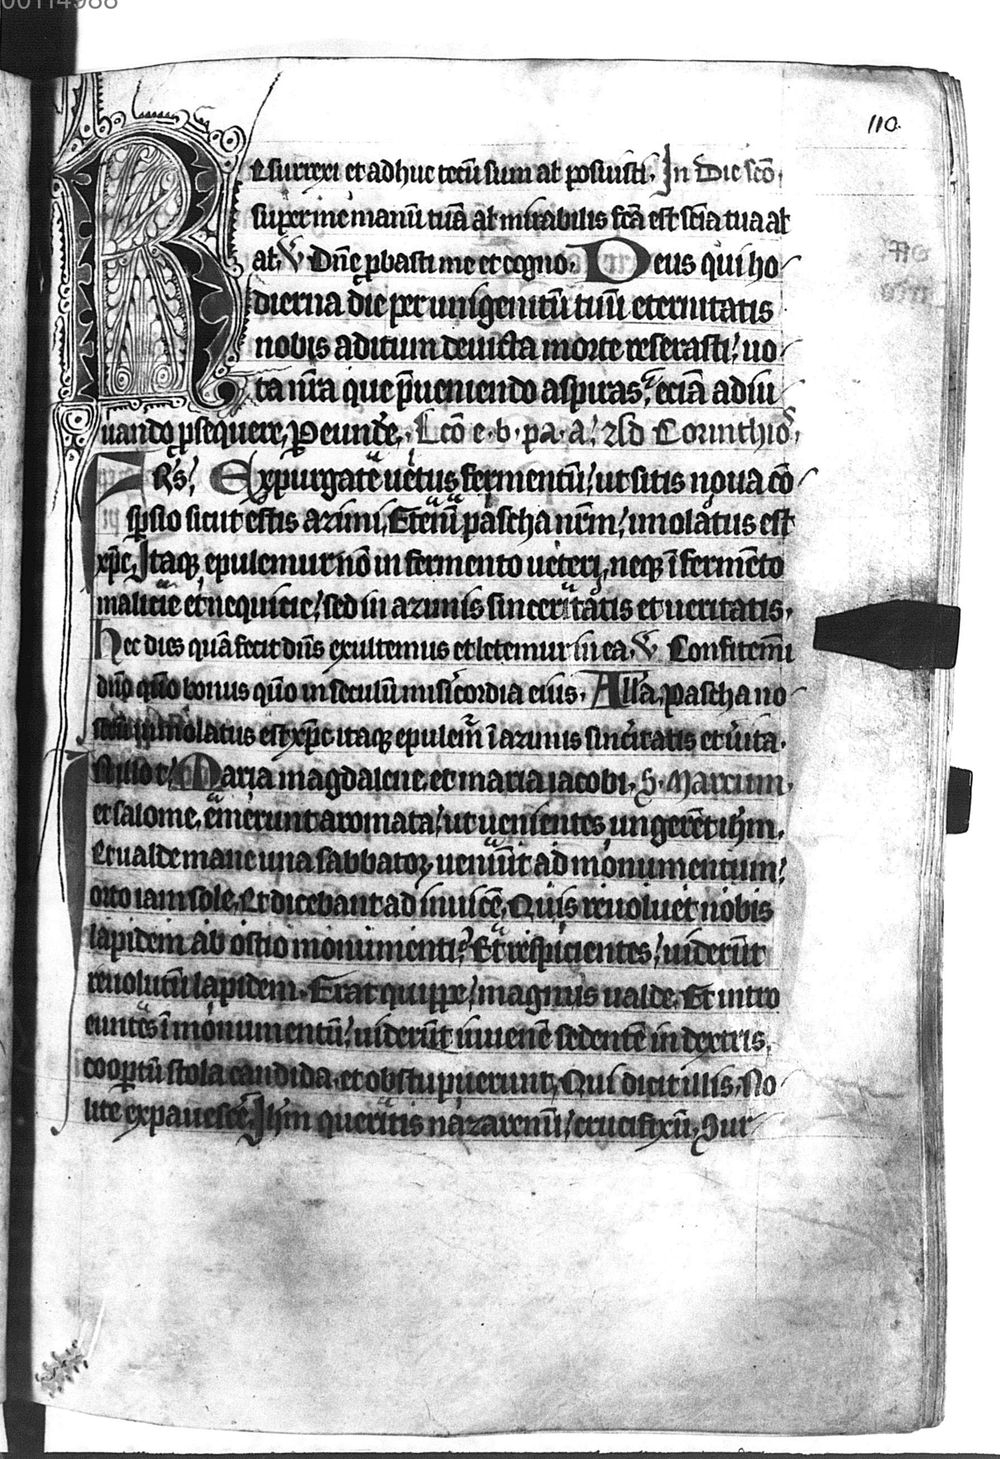 00114988
110.
Resurrexi et adhuc tecū sum al posuisti. In die scō
super me manū tuā al mirabilis fcā est scīa tua al
al. V Dn̄e ꝓbasti me et cogno. Deus qui ho
dierna die per unigenitū tuū eternitatis
nobis aditum deuicta morte reserasti, uo
ta nr̄a que p̄ueniendo aspiras, eciā adiu
uando ꝓsequere, P eundē. Lcō e. b. pa. a. ad Corinthios,
Frs̄, Expurgate uetus fermentū, ut sitis noua cō
sp̄sio sicut estis azimi, Etenī pascha nr̄m, immolatus est
xp̄c, Itaqꝫ epulemur nō in fermento ueteri, neqꝫ ī fermēto
malicie et nequicie, sed in azimis sinceritatis et ueritatis.
Hec dies quā fecit dn̄s exultemus et letemur in ea. V Confitemī
dn̄o qm̄o bonus qm̄o in seculū misicordia eius. Alla, pascha no
strū immolatus est xp̄c itaqꝫ epulem̄ ī azimis sinc̄itatis et ūita.
In illo t. Maria magdalene, et maria iacobi, S. Marcum.
et salome, emerunt aromata, ut uenientes ungerēt ih̄m,
Et ualde mane una sabbatoꝝ, ueniūt ad monumentum,
orto iam sole, Et dicebant ad inuicē, Quis reuoluet nobis
lapidem ab ostio monumenti? Et respicientes, uiderūt
reuolutū lapidem. Erat quippe, magnus ualde. Et intro
euntes ī monumentū, uiderūt iuuenē sedentē in dextris,
cooꝑtū stola candida, et obstupuerunt, Qui dicit illis, No
lite expauescē, Ih̄m queritis nazarenū, crucifixū, Sur